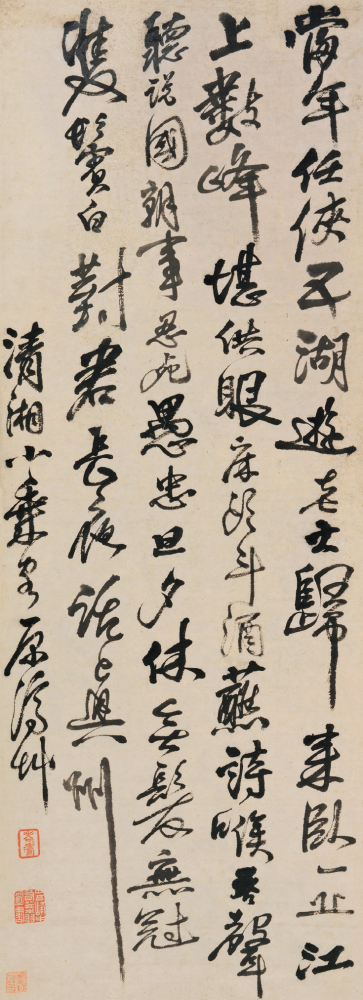 當年任俠五湖遊老去歸來臥一丘江
上數峰堪供眼床頭斗酒蘸詩喉吞聲
聽說國朝事忍死愚忠旦夕休無髮無冠
雙鬢白對君長夜話州
清湘小乘客原濟艸